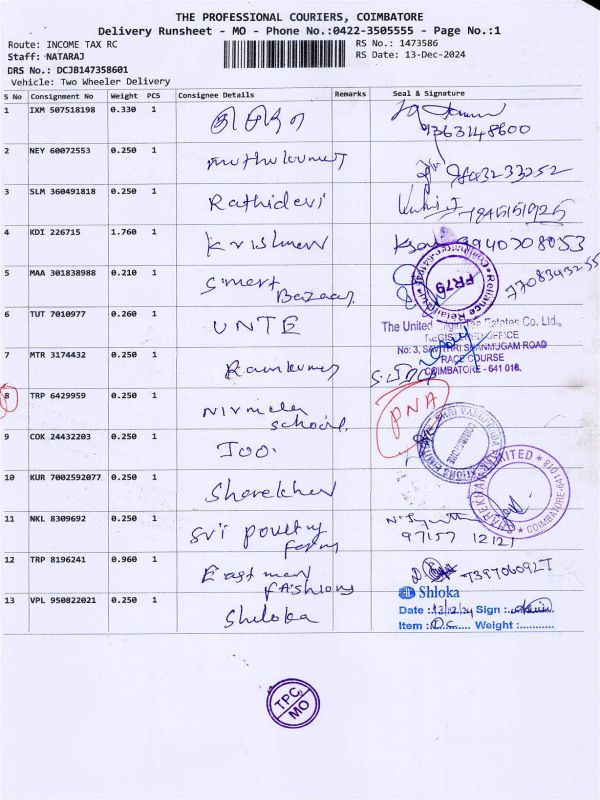 THE PROFESSIONAL COURIERS, COIMBATORE
Delivery Runsheet - MO - Phone No.:0422-3505555 - Page No.:1
Route: INCOME TAX RC
RS No.: 1473586
Staff: NATARAJ
RS Date: 13-Dec-2024
DRS No.: DCJB147358601
Vehicle: Two Wheeler Delivery
S No Consignment No Weight PCS Consignee Details Remarks Seal & Signature
1 IXM 507518198 0.330 1
9363148600
2 NEY 60072553 0.250 1 muthukumar
9843233252
3 SLM 360491818 0.250 1 Rathidevi
4 KDI 226715 1.760 1 Krishnan
9940708053
5 MAA 301838988 0.210 1 Smart
Bazaar
7708343255
Reliance Retail
FR79
6 TUT 7010977 0.260 1 UNTE
The United Estates Co. Ltd.,
REGISTERED OFFICE
No: 3, SAVITHRI SHANMUGAM ROAD
RACE COURSE
COIMBATORE - 641 018.
7 MTR 3174432 0.250 1 Ramkumar
8 TRP 6429959 0.250 1 Nirmala
school.
PNA
9 COK 24432203 0.250 1 JOO.
10 KUR 7002592077 0.250 1 Sharekhan
SHAREKHAN LIMITED
COIMBATORE-641 018
11 NKL 8309692 0.250 1 Sri poultry
farm
97157 12121
12 TRP 8196241 0.960 1 East man
fashions
13 VPL 950822021 0.250 1 Shiloka
Shloka
Date : 13/12/24 Sign :
Item : D.C Weight :
TPC
MO